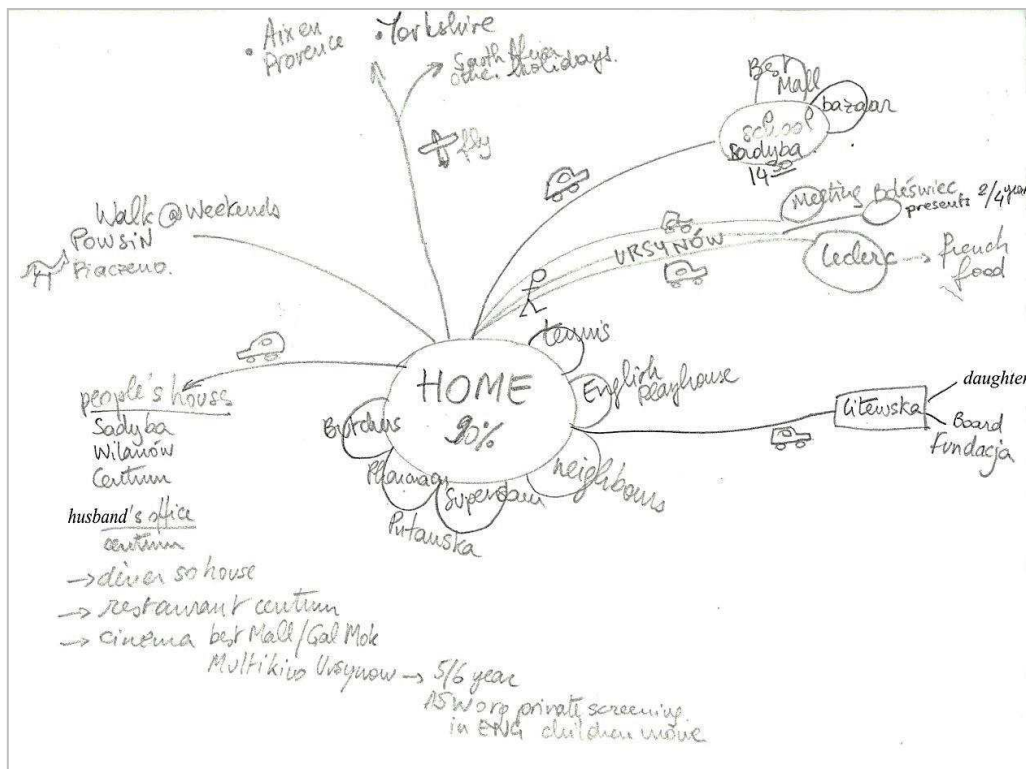 • Aix en
Provence
• Yorkshire
South Africa
other holidays.
fly
Best
Mall
bazaar
school
Sadyba
14 30
Meeting Bolesłwiec
presents 2/4 year
URSYNÓW
Leclerc → french
food
Walk @ Weekends
Powsin
Piaczeno.
tennis
English
playhouse
HOME
90%
Butchers
Pharmacy
Supersam
Putauska
neighbours
Litewska
daughter
Board
Fundacja
people's houses
Sadyba
Wilanów
Centrum
husband's office
centrum
→ diner so house
→ restaurant centrum
→ cinema best Mall/Gal Mok
Multikino Ursynow → 5/6 year
private screening
in ENG children movie